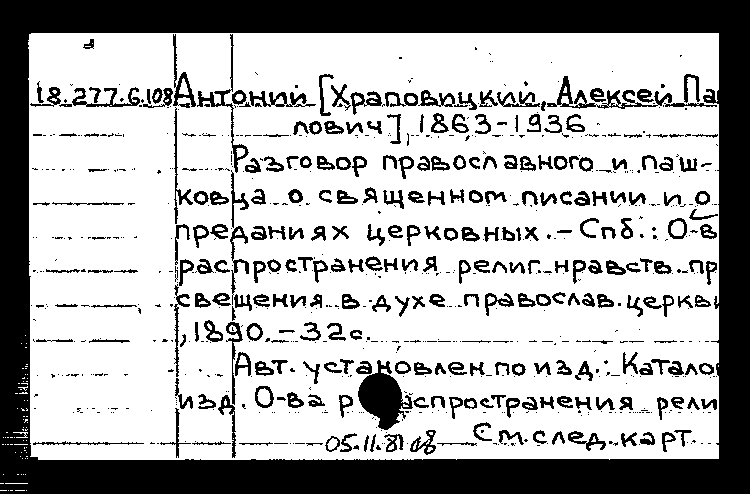 18.277.6.108 Антоний [Храповицкий, Алексей Пав
лович], 1863-1936
Разговор православного и паш-
ковца о священном писании и о
преданиях церковных. - Спб.: О-в
распространения религ. нравств. пр
свещения в духе православ. церкви
, 1890. - 32 с.
Авт. установлен по изд.: Катало
изд. О-ва распространения рели
05.11.81 См. след. карт.